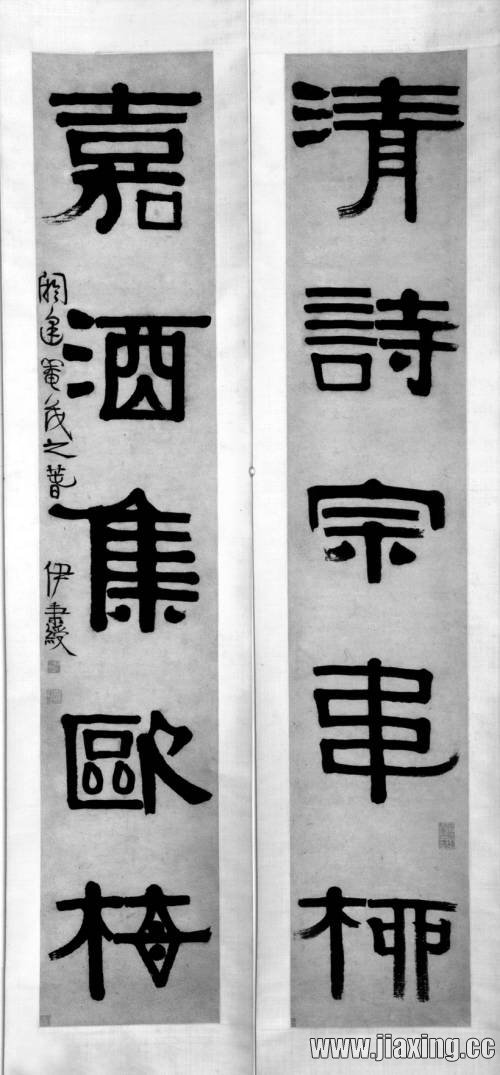 清詩宗韋柳
嘉酒集歐梅
閼逢閹茂之
伊秉綬
www.jiaxing.cc